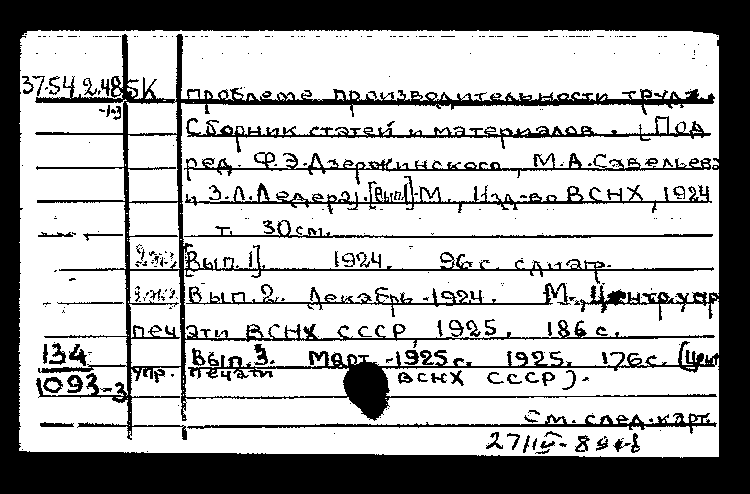 37.54.2.485К проблеме производительности труда.
-1-3 Сборник статей и материалов. [Под
ред. Ф.Э.Дзержинского, М.А.Савельева
и З.Л.Ледера]. [Вып.]-М., Изд-во ВСНХ, 1924
т. 30см.
2экз [Вып.1]. 1924. 96с. сдиагр.
2экз Вып.2. Декабрь-1924. М., Центр.упр
печати ВСНХ СССР, 1925. 186с.
134 Вып.3. Март-1925г. 1925. 176с. (Цент
1093-3 упр. печати ВСНХ СССР).
См. след.карт.
27/IV-89